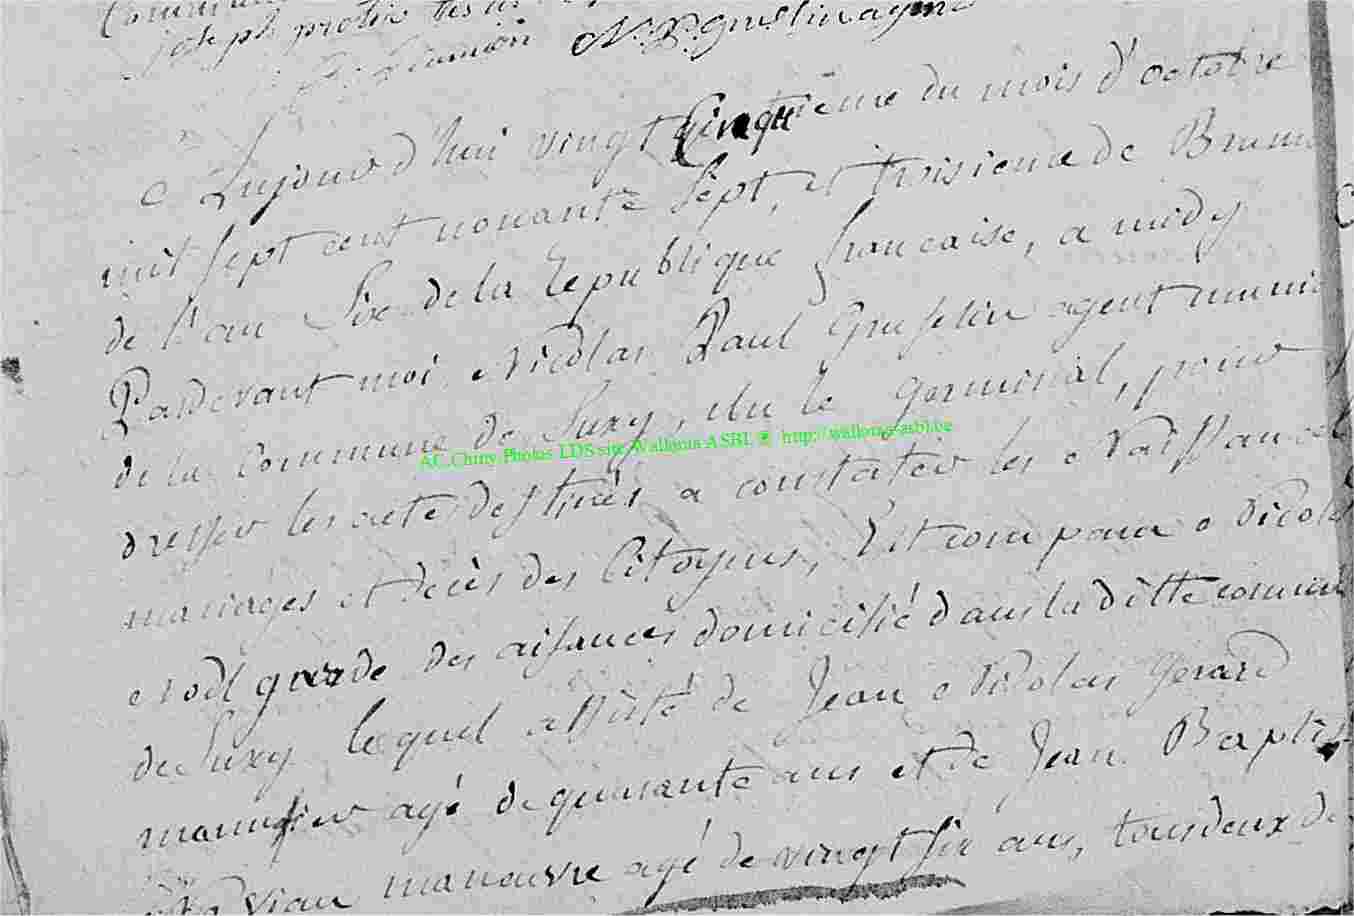 joseph
N: P: Gruslin agent
Aujourd'hui vingt cinquième du mois d'octobre
mil sept cent nonante sept, et troisieme de Brum
de l'an Six de la republique francaise, a midy
Pardevant moi Nicolas Paul Gruslin agent munic
de la Commune de Suxy, élu le germinal, pour
dresser les acte destinés a constater les Naissances
mariages et decès des Citoyens, Est comparu Nicolas
Noël garde des aisances domicilié dans la ditte commun
de Suxy lequel assisté de Jean Nicolas Gerard
agé de quarante ans et de Jean Baptis
manouvre agé de vingt six ans, tous deux de
AC.Chiny Photos LDS site Wallonia ASBL http://wallonia-asbl.be